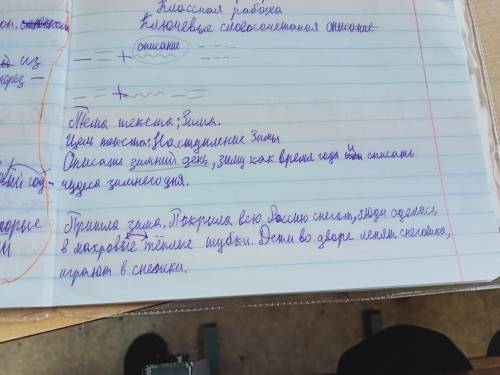 Классная работка
Ключевые словосочетания описание
описание
+
+
из
через —
Тема текста: Зима.
Цель текста: Наступление Зимы
Описать зимний день, зиму как время года и описать
чудеса зимнего дня.
год-
Пришла зима. Покрыла всю Россию снегом, люди оделись
в махровые тёплые шубки. Дети во дворе лепят снеговика,
играют в снежки.